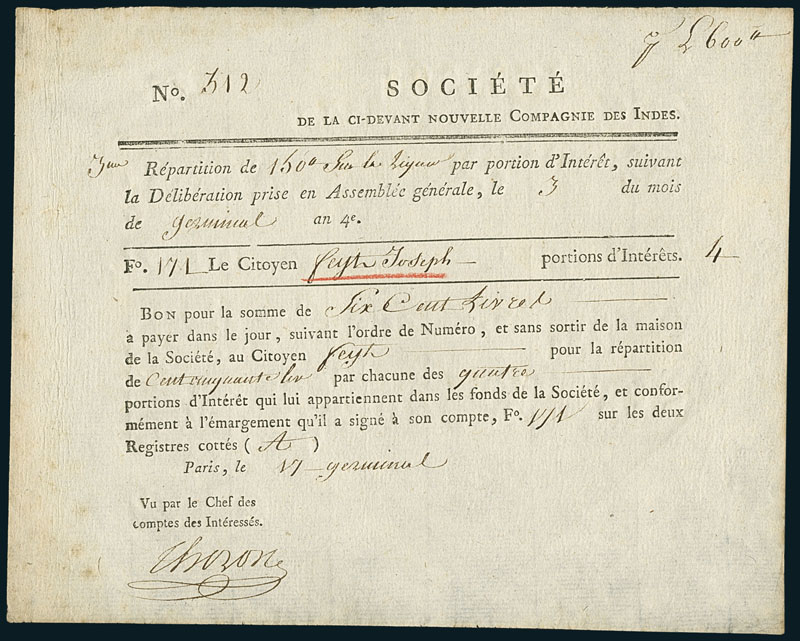 £ 600ᵗᵗ
Nº. 312
SOCIÉTÉ
DE LA CI-DEVANT NOUVELLE COMPAGNIE DES INDES.
3me Répartition de 150ᵗᵗ Sur le par portion d'Intérêt, suivant
la Délibération prise en Assemblée générale, le 3 du mois
de germinal an 4e.
Fº. 171 Le Citoyen feyt Joseph portions d'Intérêts. 4
BON pour la somme de Six Cent Livres
à payer dans le jour, suivant l'ordre de Numéro, et sans sortir de la maison
de la Société, au Citoyen feyt pour la répartition
de Cent cinquante liv par chacune des quatre
portions d'Intérêt qui lui appartiennent dans les fonds de la Société, et confor-
mément à l'émargement qu'il a signé à son compte, Fº. 171 sur les deux
Registres cottés ( A )
Paris, le 17 germinal
Vu par le Chef des
comptes des Intéressés.